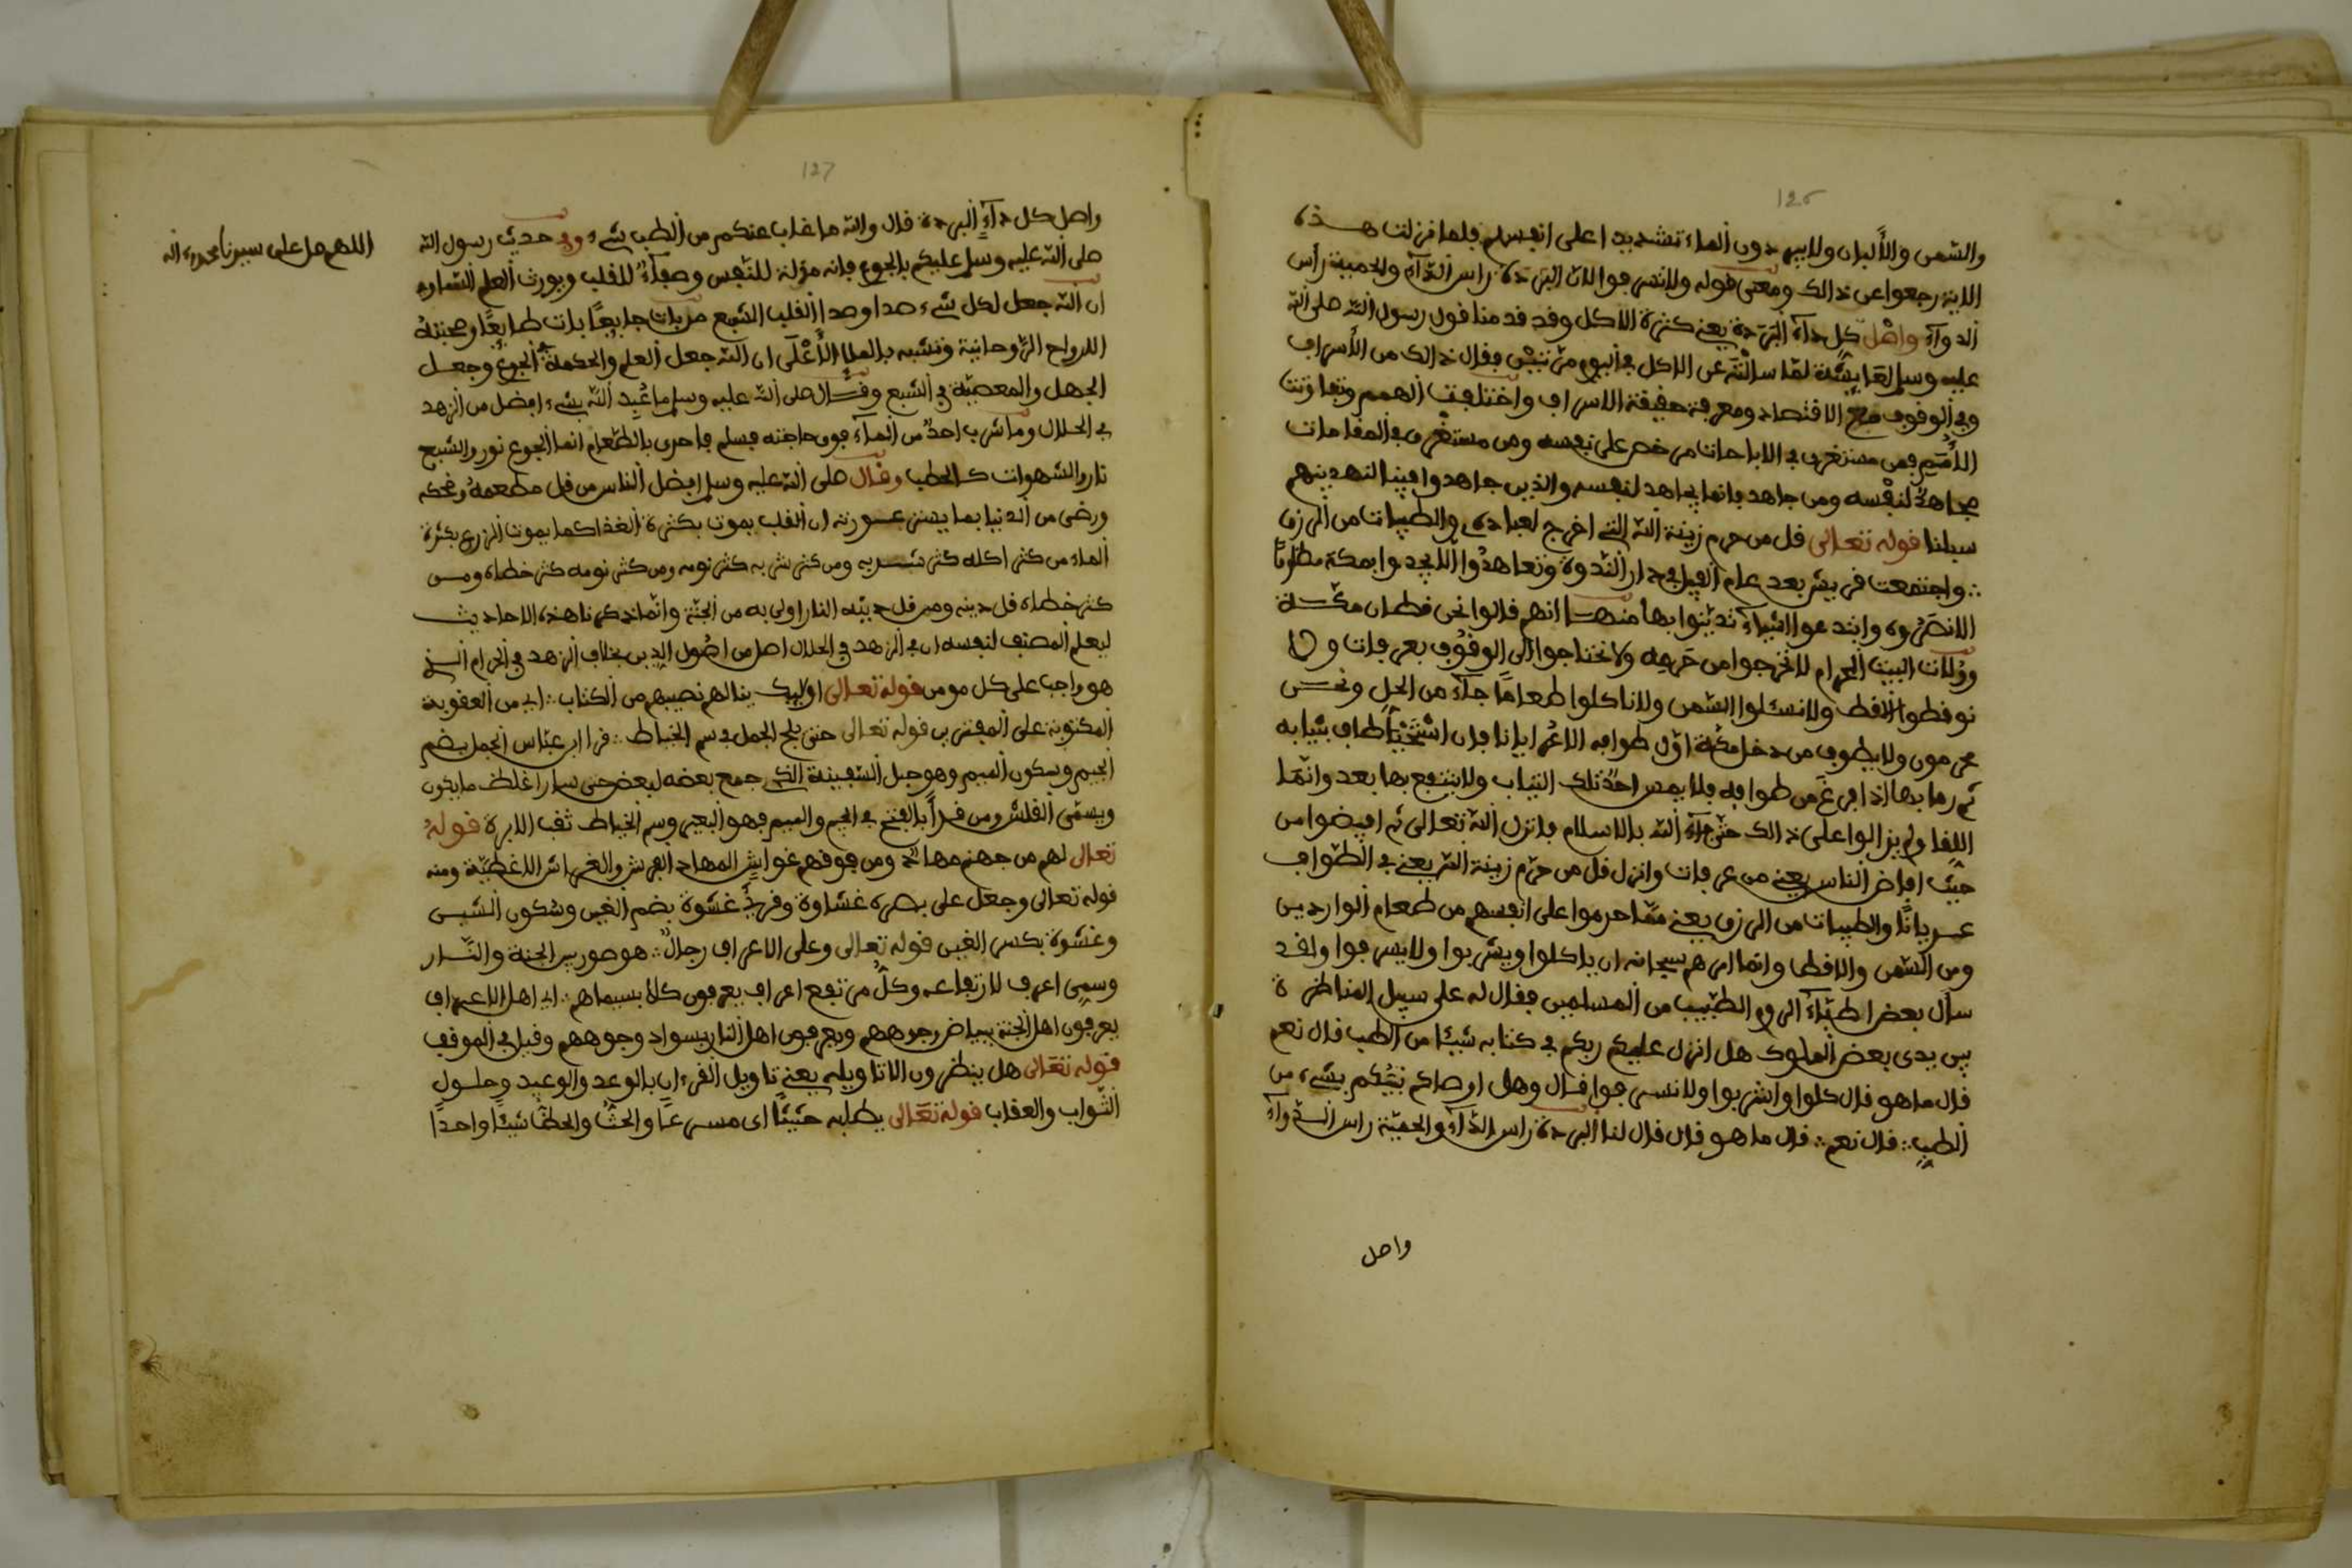 126
والسّمن والألبان ولا يريدون الماء تشديدا على انفسهم فلما نزلت هذه
الاية رجعوا عن ذالك ومعنى قوله ولا تسرفوا لان البردة راس الدّآء والحمية رأس
الدوآء واصل كل دآء البردة يعني كثرة الاكل وقد قدمنا قول رسول الله صلى الله
عليه وسلم لعايشة لمّا سالته عن الاكل في اليوم مرّتين فقال ذالك من الأسراف
وفي الوقوف مع الاقتصاد ومعرفة حقيقة الاسراف واختلفت الهمم وتفاوتت
الأمم فمن مستغرق في الاباحات مرخص على نفسه ومن مستغرق في المقامات
مجاهد لنفسه ومن جاهد فانما يجاهد لنفسه والذين جاهدوا فينا لنهدينهم
سبلنا قوله تعالى قل من حرم زينة الله التي اخرج لعباده والطيبات من الرزق
واجتمعت قريش بعد عام الفيل في دار النّدوة وتعاهدوا الا يجدوا بمكة مظلوما
الا نصروه وابتدعوا اشيآء تديّنوا بها منها انهم قالوا نحن قطان مكة
وولات البيت الحرام لا نخرجوا من حرمه ولا نحتاجوا الى الوقوف بعرفات ولا
نوقطوا الاقط ولا نسلوا السّمن ولا ناكلوا طعامًا جآء من الحل ونحن
محرمون ولا يطوف من دخل مكة اوّل طوافه الا عريانا فان استحيا طاف بثيابه
ثم رما بها اذا فرغ من طوافه فلا يمس احد تلك الثياب ولا ينتفع بها بعد وانّما
اللقا ولم يزالوا على ذالك حتى جآء الله بالاسلام فانزل الله تعالى ثم افيضوا من
حيث افاض الناس يعني من عرفات وانزل قل من حرّم زينة الله يعني في الطّواف
عريانًا والطيبات من الرزق يعني ممّا حرموا على انفسهم من طعام الواردين
ومن السّمن والاقط وانما امرهم سبحانه ان ياكلوا ويشربوا ولا يسرفوا ولقد
سأل بعض اطبّاء الروم الطّبيب من المسلمين فقال له على سبيل المناظرة
بين يدى بعض الملوك هل انزل عليكم ربكم في كتابه شيئا من الطب قال نعم
قال ما هو قال كلوا واشربوا ولا تسرفوا فقال وهل اوصاكم نبيّكم بشيء من
الطب قال نعم قال ما هو قال قال لنا البردة راس الدّآء والحميّة راس الدّوآء
واصل
127
واصل كل دآء البردة قال والله ما غاب عنكم من الطب شيء وفي حديث رسول الله
صلى الله عليه وسلم عليكم بالجوع فانه مذلة للنّفس وصفآء للقلب ويورث العلم السّماوي
ان الله جعل لكل شيء صدا وصدا القلب الشبع من بات جايعًا بات طايعًا وصحبته
الارواح الرّوحانية وتشبه بالملإ الأعلى ان الله جعل العلم والحكمة في الجوع وجعل
الجهل والمعصيّة في الشبع وقال صلى الله عليه وسلم ما عُبد الله بشيء افضل من الزهد
في الحلال وما شرب احد من المآء فوق حاجته فيسلم فاحرى بالطّعام انما الجوع نور والشبع
نار والشهوات كالحطب وقال صلى الله عليه وسلم افضل الناس من قل مطعمه وضحكه
ورضى من الدنيا بما يستر عورته ان القلب يموت بكثرة الغذا كما يموت الزرع بكثرة
الماء من كثر اكله كثر شربه ومن كثر شربه كثر نومه ومن كثر نومه كثر خطاه ومن
كثر خطاه قل دينه ومن قل دينه النار اولى به من الجنّة وانّما ذكرنا هذه الاحاديث
ليعلم المصنف لنفسه ان في الزهد في الحلال اصل من اصول الدين بخلاف الزهد في الحرام الذي
هو واجب على كل مومن قوله تعالى اوليك ينالهم نصيبهم من الكتاب اي من العقوبة
المكتوبة على المفترين قوله تعالى حتى يلج الجمل في سم الخياط قرا ابن عبّاس الجمل بضم
الجيم وسكون الميم وهو حبل السّفينة الذي جمع بعضه لبعض حتى سار اغلظ ما يكون
ويسمّى القلس ومن قرأ بالفتح في الجيم والميم فهو البعير وسم الخياط ثقب الابرة قوله
تعالى لهم من جهنم مهاد ومن فوقهم غواش المهاد الفرش والغواش الاغطيّة ومنه
قوله تعالى وجعل على بصره غشاوة وقرئ غشوة بضم الغين وسكون الشين
وغشوة بكسر الغين قوله تعالى وعلى الاعراف رجال هو صور بين الجنة والنّار
وسمى اعرف لارتفاعه وكل مرتفع اعراف يعرفون كلا بسيماهم اي اهل الاعراف
يعرفون اهل الجنة ببياض وجوههم ويعرفون اهل النار بسواد وجوههم وقيل في الموقف
قوله تعالى هل ينظرون الا تاويله يعني تاويل القرءان بالوعد والوعيد وحلول
الثّواب والعقاب قوله تعالى يطلبه حثيثًا اى مسرعًا والحث والحظ شيئًا واحدًا
اللهم صل على سيدنا محمد وءاله